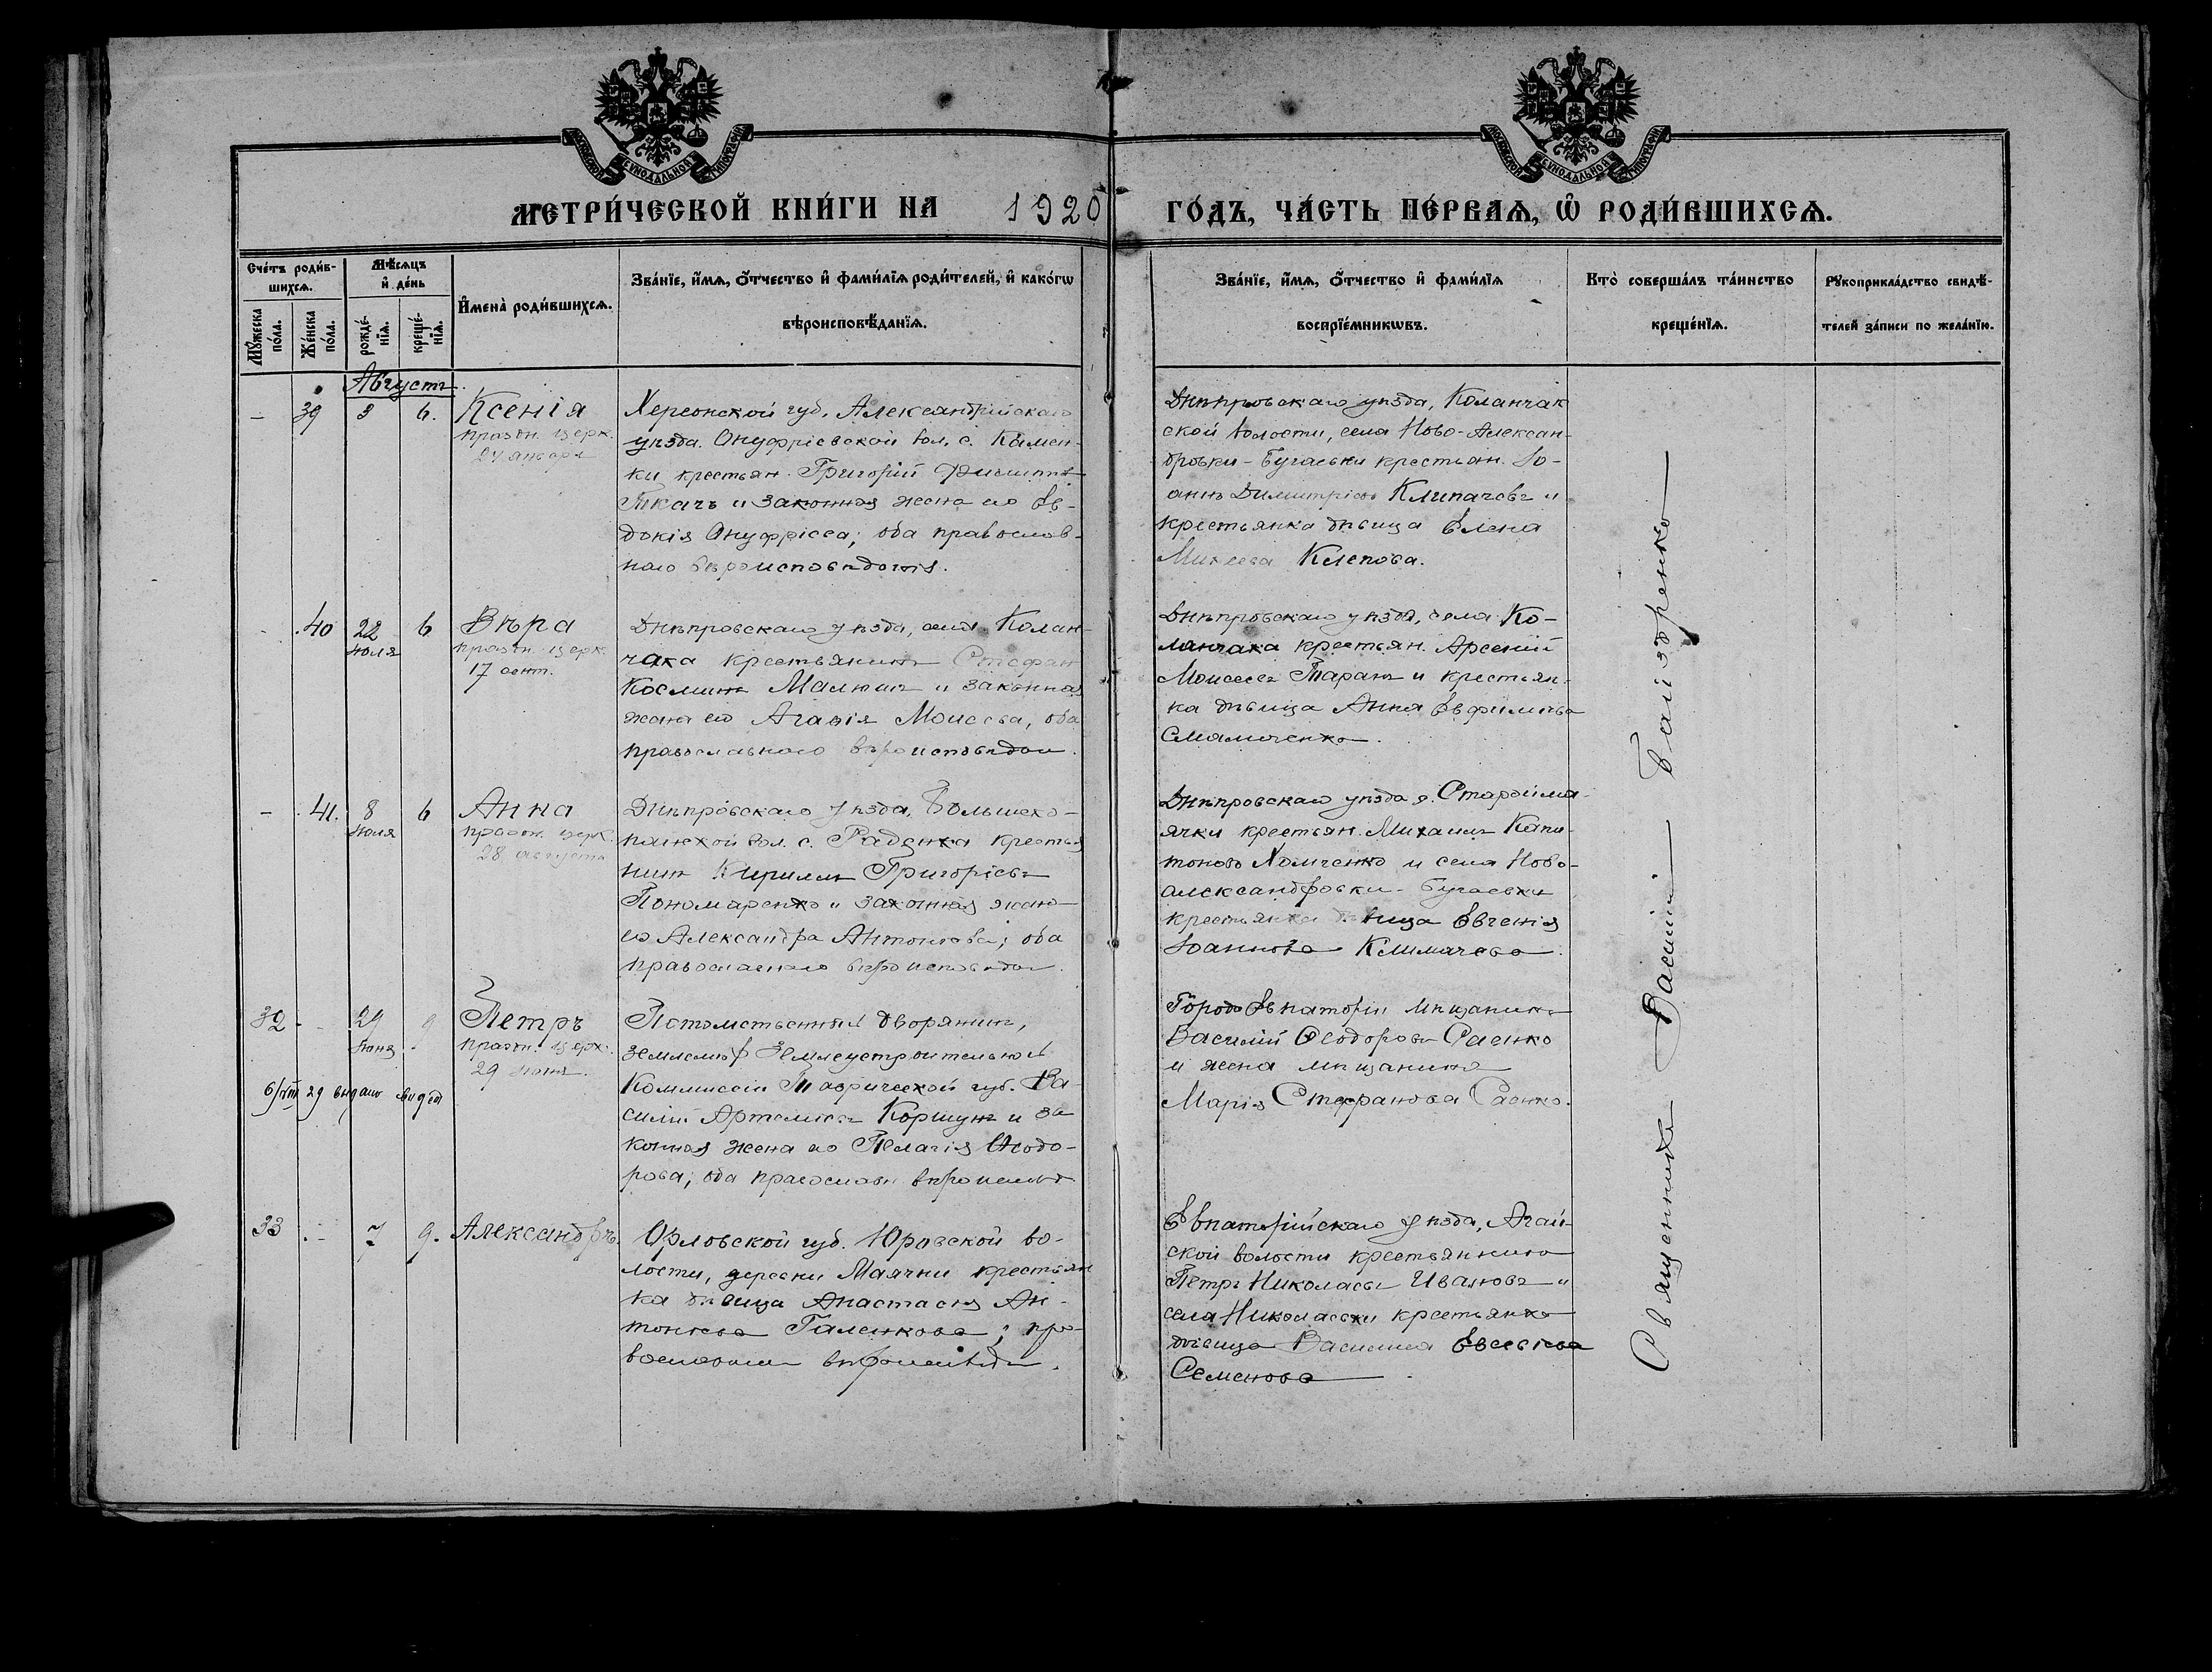 МОСКОВСКОЙ СѴНОДАЛЬНОЙ ТИПОГРАФІИ
МОСКОВСКОЙ СѴНОДАЛЬНОЙ ТИПОГРАФІИ
МЕТРИ́ЧЕСКОЙ КНИ́ГИ НА 1920 ГО́ДЪ, ЧА́СТЬ ПЕ́РВАѦ, Ѽ РОДИ́ВШИХСѦ.
Сче́тъ роди́в-
шихсѧ.
Мꙋ́жеска по́ла.
Же́нска по́ла.
Мѣ́сѧцъ и҆ де́нь
рожде́-нїѧ.
креще́-нїѧ.
И҆мена̀ роди́вшихсѧ.
Зва́нїе, и҆́мѧ, ѻ҆́тчество и҆ фами́лїѧ роди́телей, и҆ како́гѡ
вѣроисповѣ́данїѧ.
Зва́нїе, и҆́мѧ, ѻ҆́тчество и҆ фами́лїѧ
воспрїе́мникѡвъ.
Кто̀ соверша́лъ та́инство
креще́нїѧ.
Рꙋкоприкла́дство свидѣ́-
телей за́писи по жела́нїю.
Августъ
– 39 3 6. Ксенія
празн. церк.
24 января
Херсонской губ. Александрійскаго
уѣзда. Онуфріевской вол. с. Камен-
ки крестьян. Григорій
Ткачъ и законная жена его Ев-
докія Онуфріева; оба православ-
наго вѣроисповѣданія.
Днѣпровскаго уѣзда, Коланчак
ской волости, села Ново-Алексан-
дровки-Бугаевки крестьян. Іо-
аннъ Димитріевъ Климачевъ и
крестьянка дѣвица Елена
Михеева Клепова.
- 40 22 6 Вѣра
Іюля празн. церк.
17 сент.
Днѣпровскаго уѣзда, села Колан-
чака крестьянинъ Стефан
Косминъ Малюкъ и законная
жена его Агафія Моисеева, оба
православнаго вѣроисповѣдан.
Днѣпровскаго уѣзда, села Ко-
ланчака крестьян. Арсеній
Моисеевъ Таранъ и крестьян-
ка дѣвица Анна Евфимьева
– 41. 8 6 Анна
Іюля празн. церк.
28 августа
Днѣпровскаго уѣзда, Большеко-
панской вол. с. Раденка крестья
нинъ Кириллъ Григорьевъ
Пономаренко и законная жена
его Александра Антонова; оба
православнаго вѣроисповѣдан.
Днѣпровскаго уѣзда с. Старой Ма-
ячки крестьян. Михаилъ Капи-
тоновъ Хомченко и села Ново-
александровки-Бугаевки
крестьянка дѣвица Евгенія
Іоаннова Климачева.
32 - - 29 9 Петръ
Іюня празн. церк.
29 Іюня.
6/VIII 29 выдано свидет
Потомственный дворянинъ,
землемѣр Землеустроительной
Коммиссіи Таврической губ. Ва-
силій Артемьевъ Коршунъ и за
конная жена его Пелагія Ѳеодо-
рова; оба православн вѣроисповѣд
Города Евпаторіи мѣщанинъ
Василій Ѳеодоровъ Саенко
и жена мѣщанина
Марія Стефанова Саенко.
33 - - 7 9. Александръ.
Орловской губ. Юровской во-
лости, деревни Маячки крестьян
ка дѣвица Анастасія Ан-
тонова Галенкова; пра-
вославнаго вѣроисповѣдан.
Евпаторійскаго уѣзда, Агай-
ской волости крестьянинъ
Петръ Николаевъ Ивановъ и
села Николаевки крестьянка
дѣвица Василиса Евсеева
Семенова
Священникъ Василій Байздренко